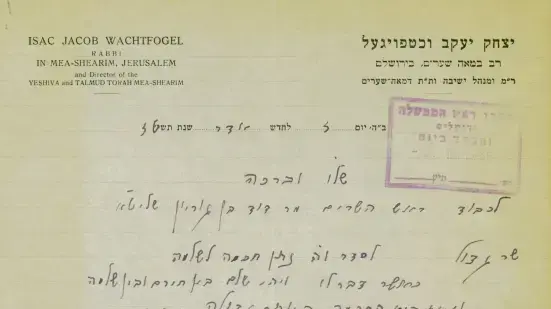 ISAC JACOB WACHTFOGEL
RABBI
IN MEA-SHEARIM, JERUSALEM
and Director of the
YESHIVA and TALMUD TORAH MEA-SHEARIM
יצחק יעקב וכטפויגעל
רב במאה שערים, בירושלם
ר"מ ומנהל ישיבה ות"ת דמאה-שערים
ב"ה, יום ז לחדש אדר שנת תש"ט
ראש הממשלה
ירושלים
שלו' וברכה
לכבוד ראש השרים מר דוד בן גוריון שליט"א
שר גדול לסדר וה' נתן חכמה לשלמה
כאשר דבר לו ויהי שלם בין חירם ובין שלמה